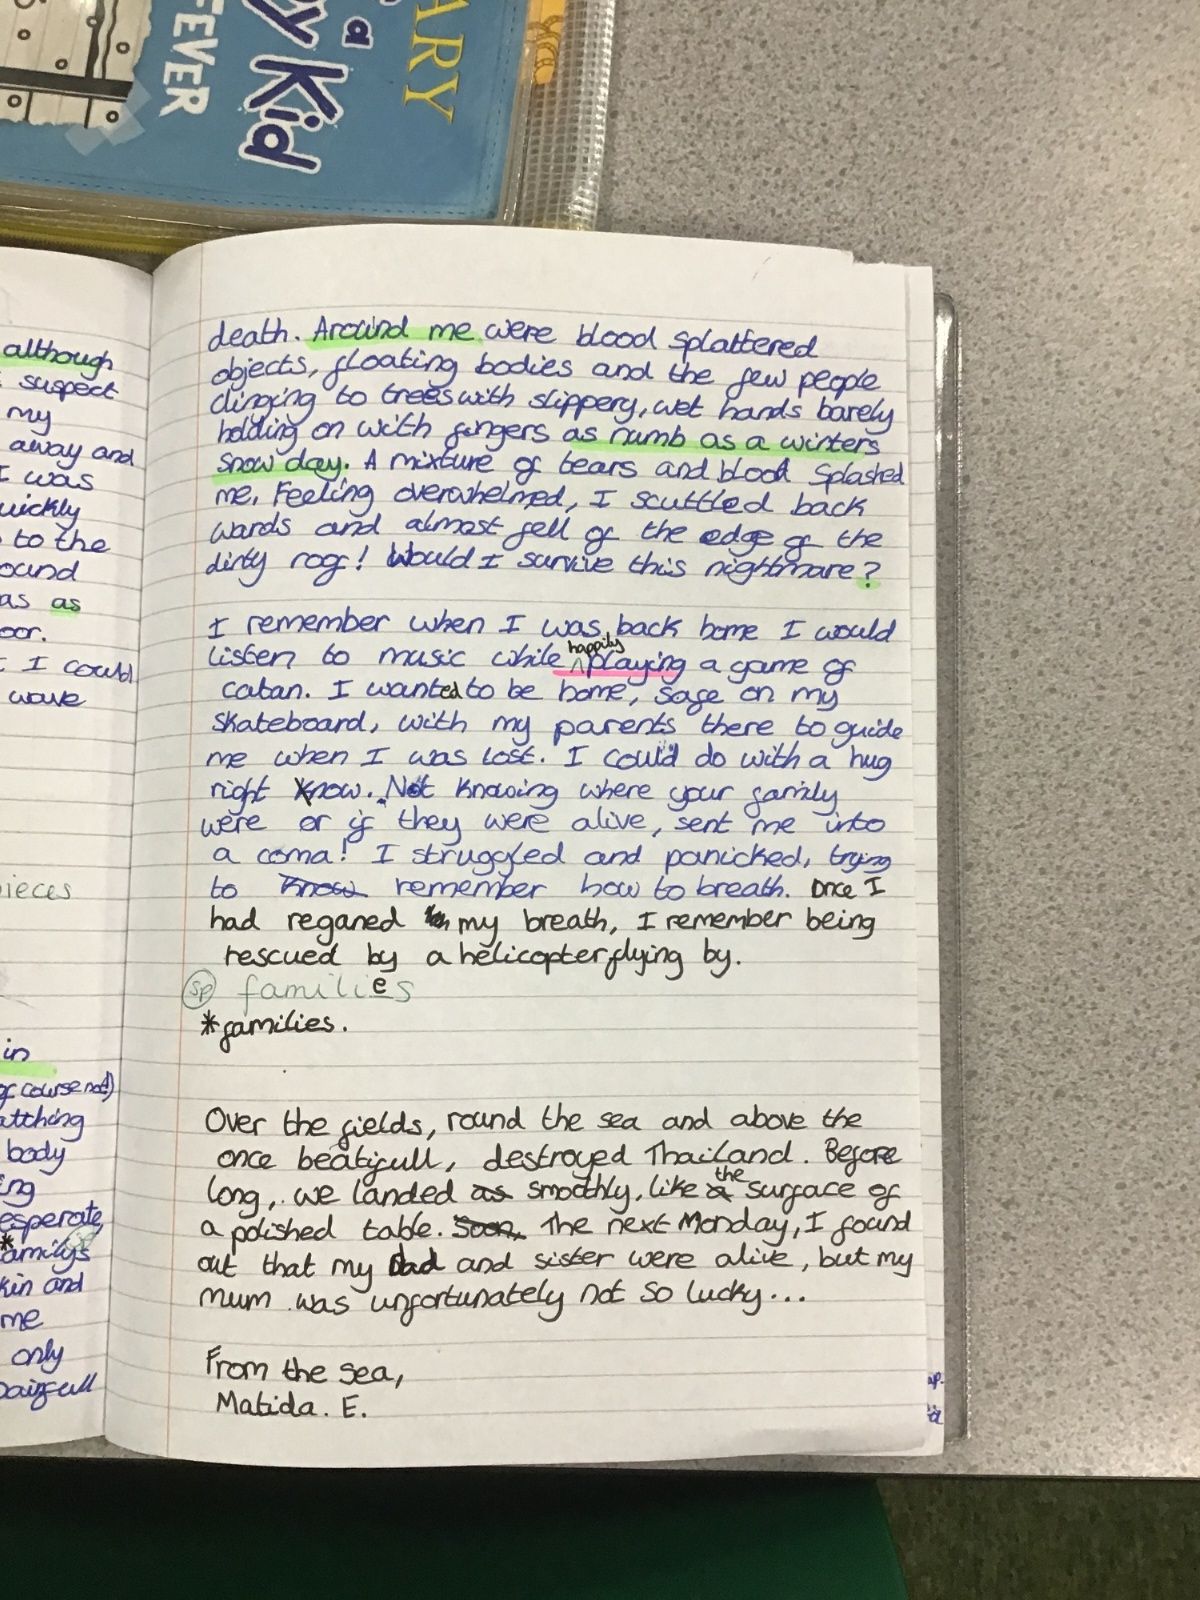 ARY
a
y Kid
FEVER
although
suspect
my
away and
I was
uickly
to the
ound
as as
oor.
I could
wave
pieces
in
of course not)
atching
body
ing
esperate
*amilys
kin and
me
only
painfull
death. Around me were blood splattered
objects, floating bodies and the few people
clinging to trees with slippery, wet hands barely
holding on with fingers as numb as a winters
snow day. A mixture of tears and blood splashed
me. Feeling overwhelmed, I scuttled back
wards and almost fell of the edge of the
dirty roof! Would I survive this nightmare?
I remember when I was back home I would
listen to music while happily playing a game of
catan. I wanted to be home, safe on my
skateboard, with my parents there to guide
me when I was lost. I could do with a hug
right know. Not knowing where your family
were or if they were alive, sent me into
a coma! I struggled and panicked, trying
to know remember how to breath. Once I
had regained my breath, I remember being
rescued by a helicopter flying by.
sp families
*families.
Over the fields, round the sea and above the
once beatifull, destroyed Thailand. Before
long, we landed as smoothly, like a the surface of
a polished table. Soon, The next Monday, I found
out that my Dad and sister were alive, but my
mum was unfortunately not so lucky...
From the sea,
Matida. E.